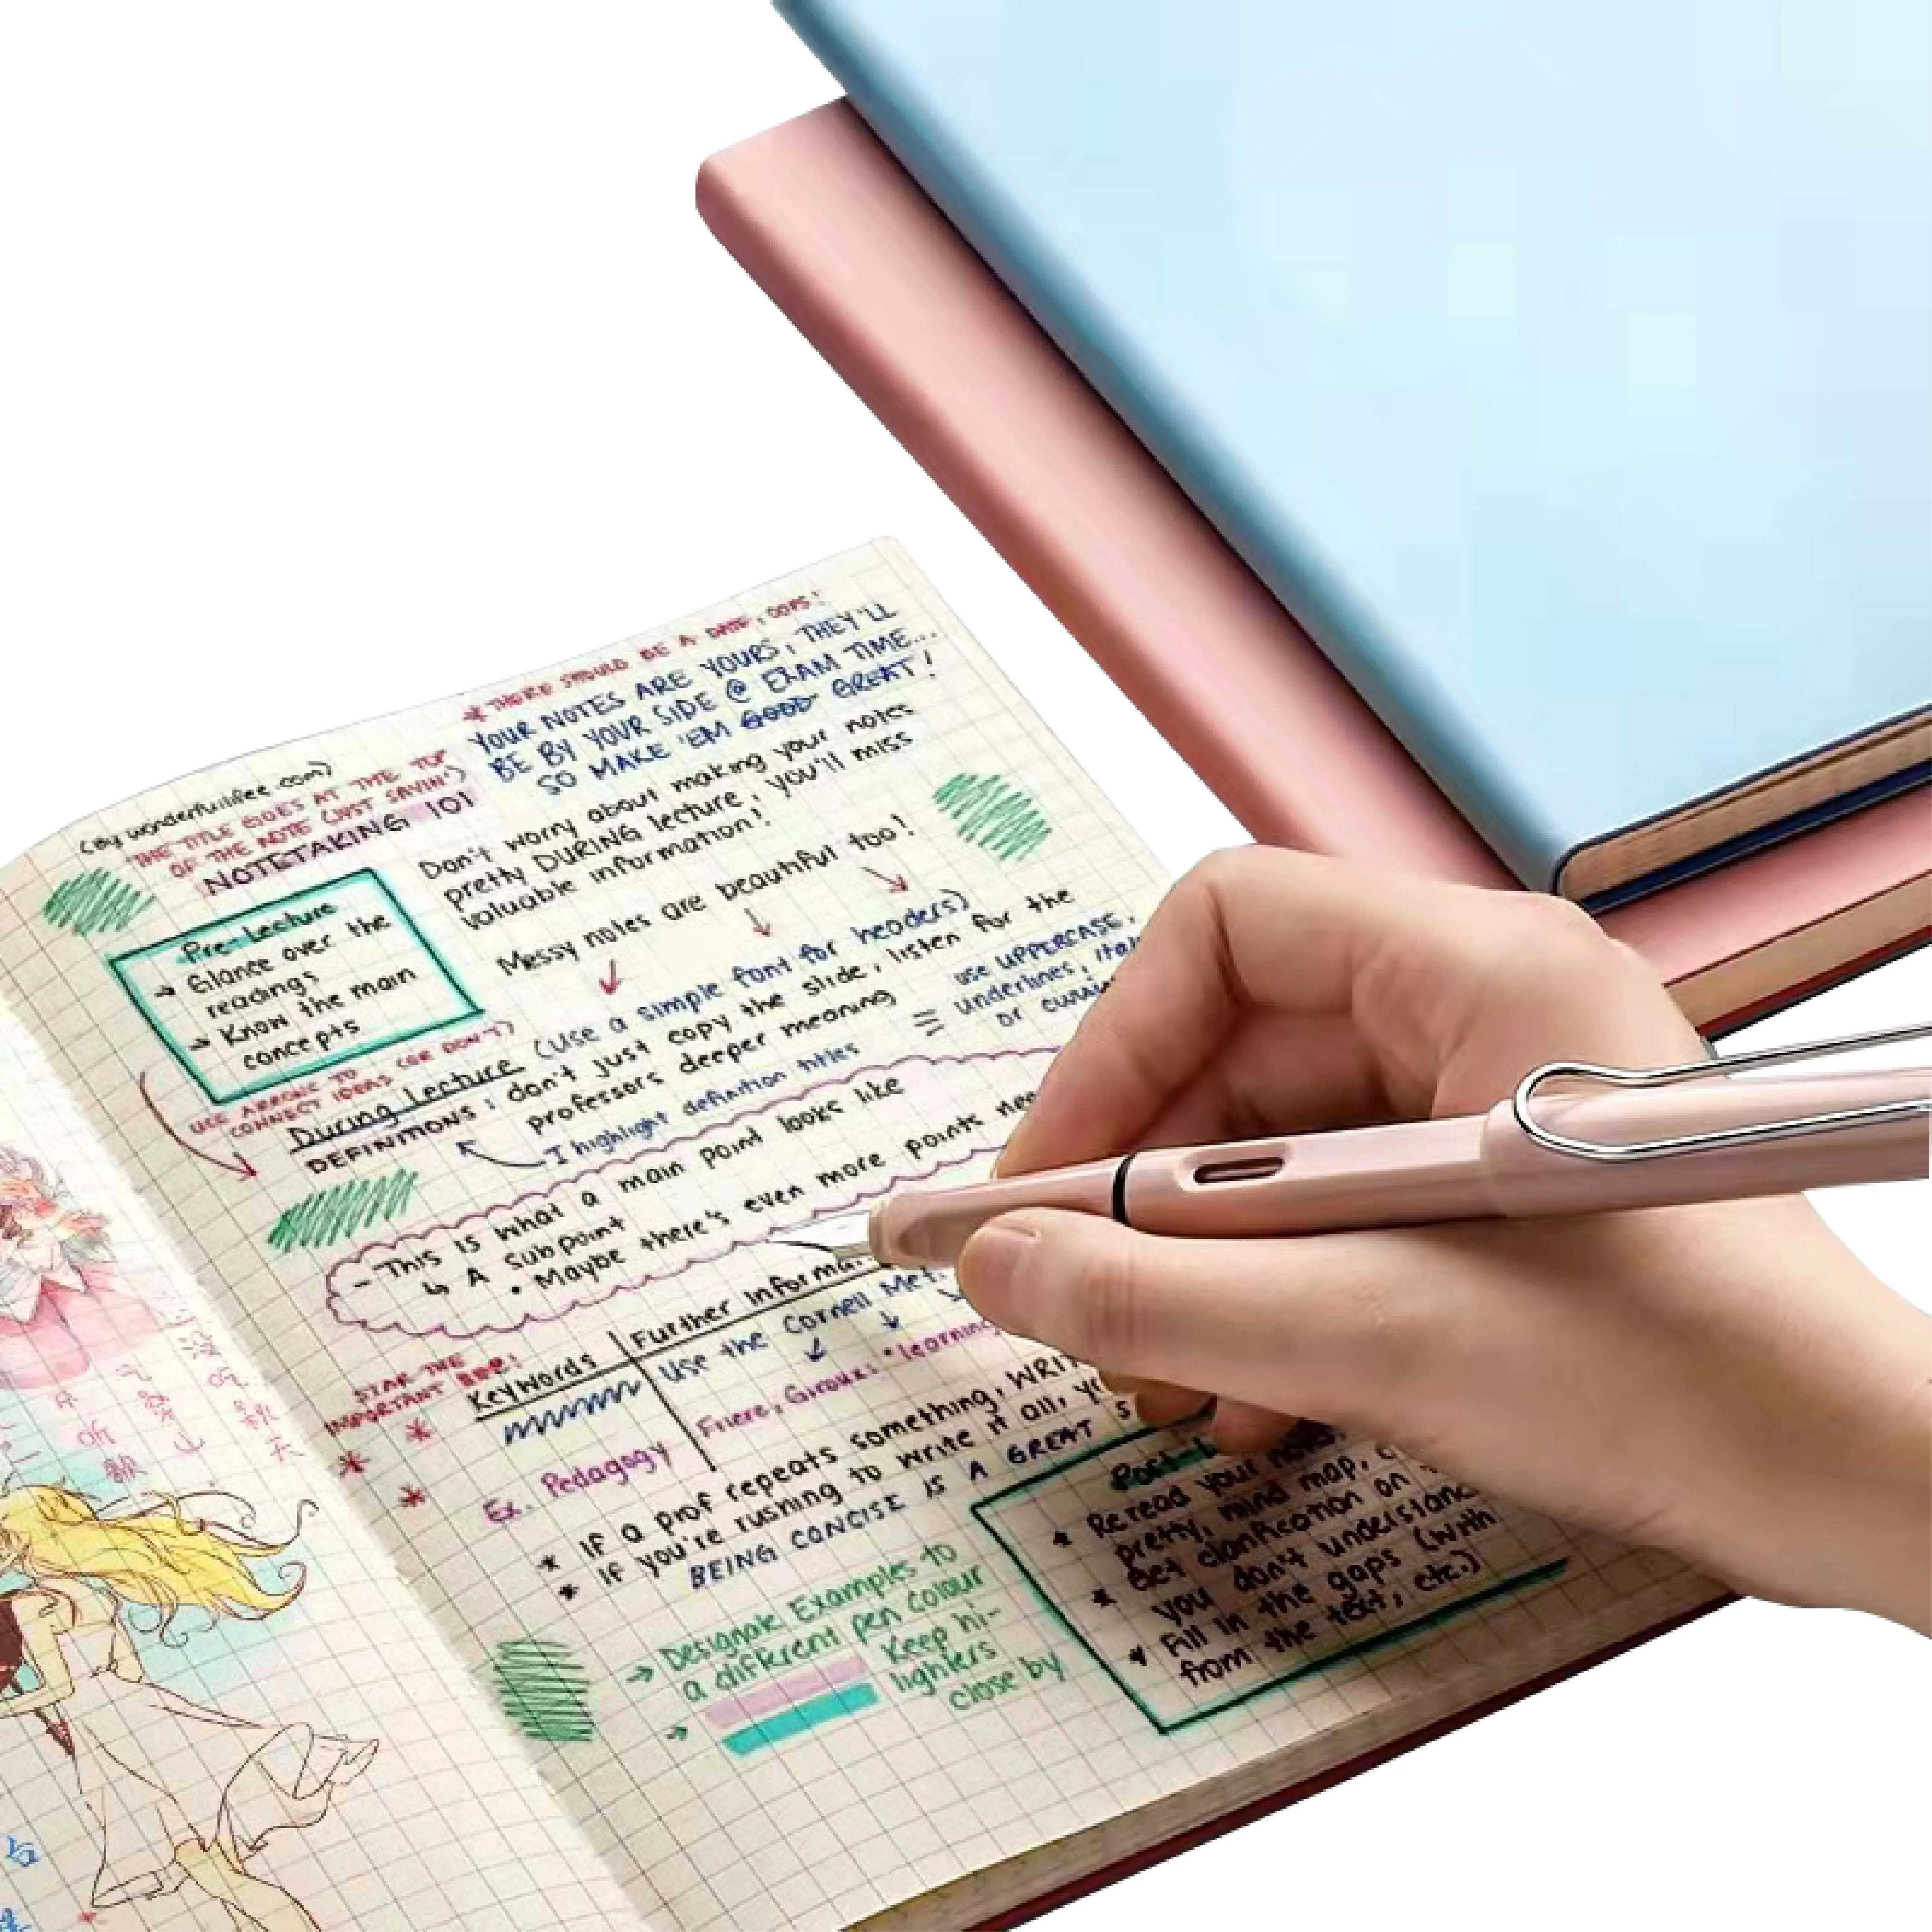 (By wonderfullifee.com)
THE TITLE GOES AT THE TOP
OF THE NOTE (JUST SAYIN')
NOTETAKING 101
* THERE SHOULD BE A DATE, OOPS!
YOUR NOTES ARE YOURS, THEY'LL
BE BY YOUR SIDE @ EXAM TIME...
SO MAKE 'EM GOOD GREAT!
Don't worry about making your notes
pretty DURING lecture, you'll miss
valuable information!
Messy notes are beautiful too!
Pre-Lecture
→ Glance over the
readings
→ Know the main
concepts
USE ARROWS TO
CONNECT IDEAS (OR DON'T)
During Lecture (use a simple font for headers)
DEFINITIONS: don't just copy the slide, listen for the
professors deeper meaning
I highlight definition titles
use UPPERCASE,
underlines, ital
or
- This is what a main point looks like
↳ A subpoint
• Maybe there's even more points
STAR THE
IMPORTANT
Keywords
Further
Use the Cornell
Ex. Pedagogy
Friere, Giroux: "learning
* If a prof repeats something,
* If you're rushing to write it all,
BEING CONCISE IS A GREAT
→ Designate Examples to
a different pen colour
→ Keep hi-
lighters
close by
* Reread your
pretty, mind map,
Get clarification on
* you don't
* Fill in the gaps (with
from the text, etc.)
听
歌